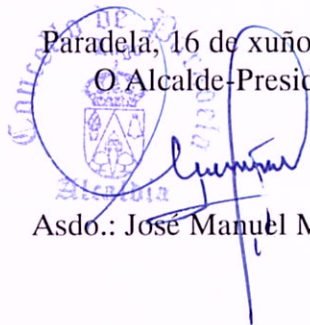 Paradela, 16 de xuño
O Alcalde-Presid
Concello de
Alcaldía
Asdo.: José Manuel M